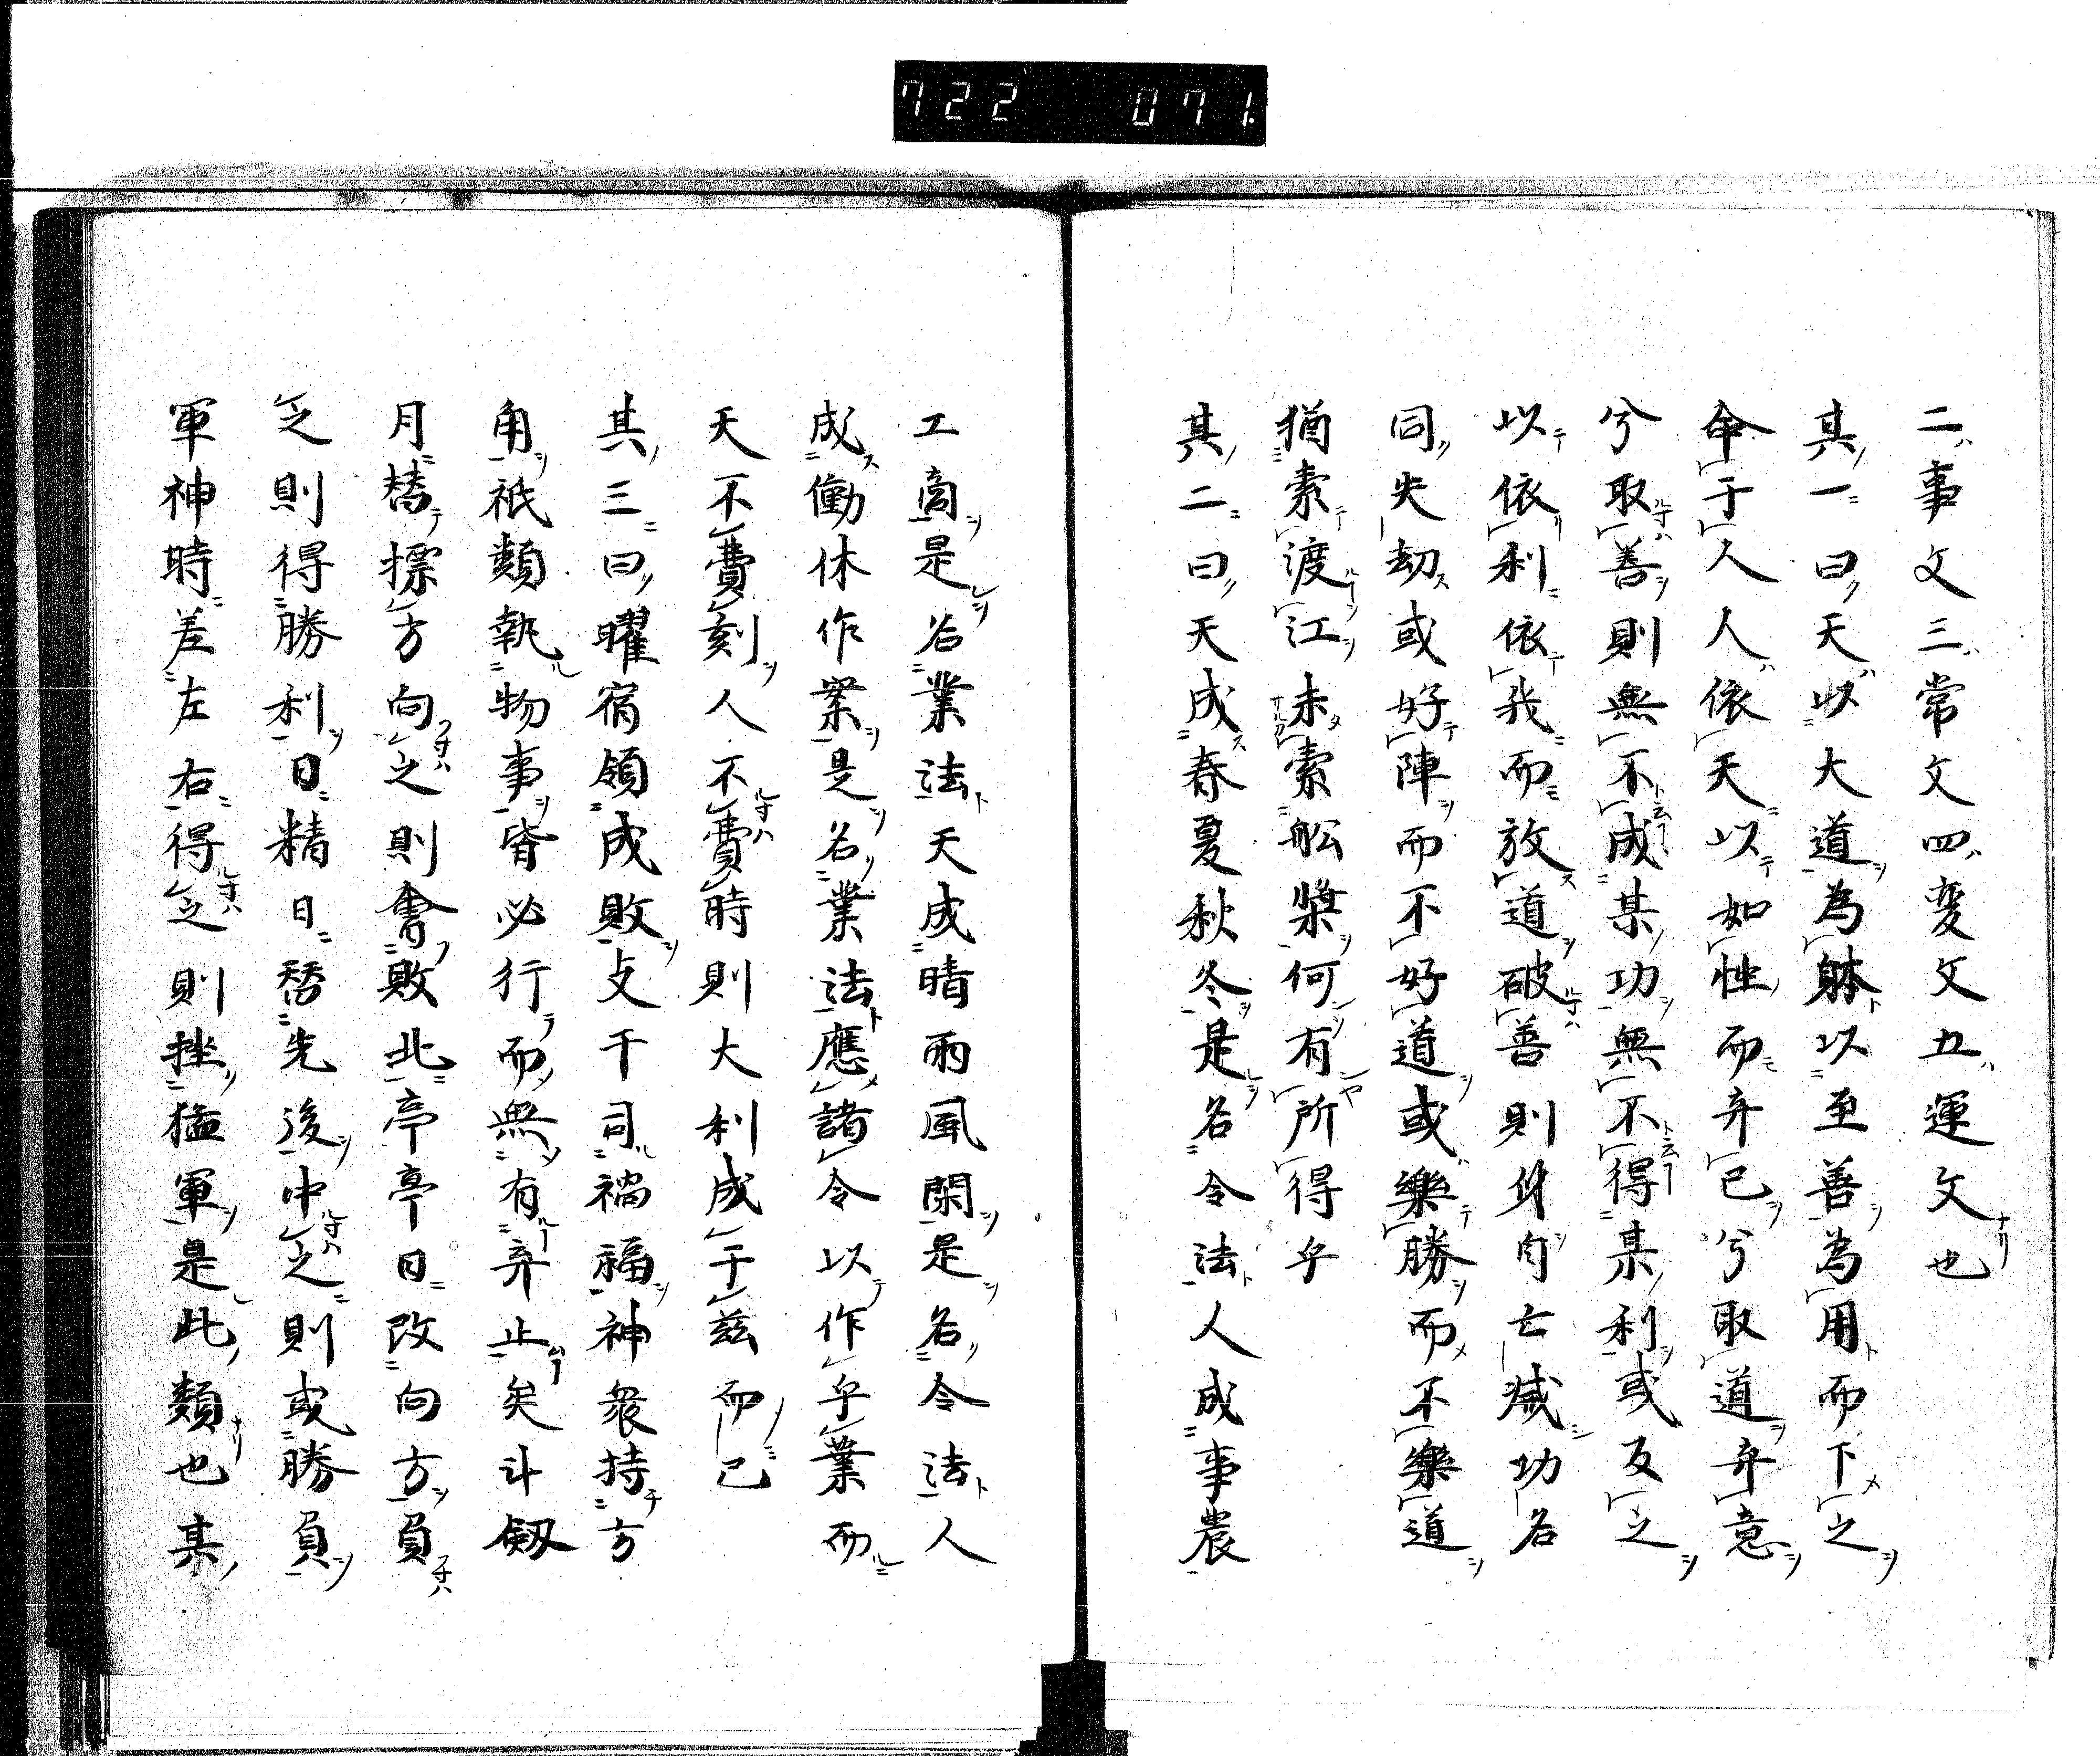 722 071
二事文三常文四変文五運文也
其一曰天以大道為躰以至善為用而下之
命于人人依天以如性而弃己兮取道弃意
兮取善則無不成某功無不得某利或反之
以依利依我而放道破善則身自亡滅功名
同失劫或好陣而不好道或樂勝而不樂道
猶索渡江未索舩槳何有所得乎
其二曰天成春夏秋冬是名令法人成事農
工商是名業法天成晴雨風閑是名令法人
成働休作業是名業法應諸令以作乎業而
天不費刻人不費時則大利成于茲而已
其三曰曜宿領成敗攴干司禍福神衆持方
角祇類執物事皆必行而無有弃止矣斗劔
月替摽方向之則會敗北亭亭日改向方負
之則得勝利日精日替先後中之則或勝負
軍神時差左右得之則挫猛軍是此類也其